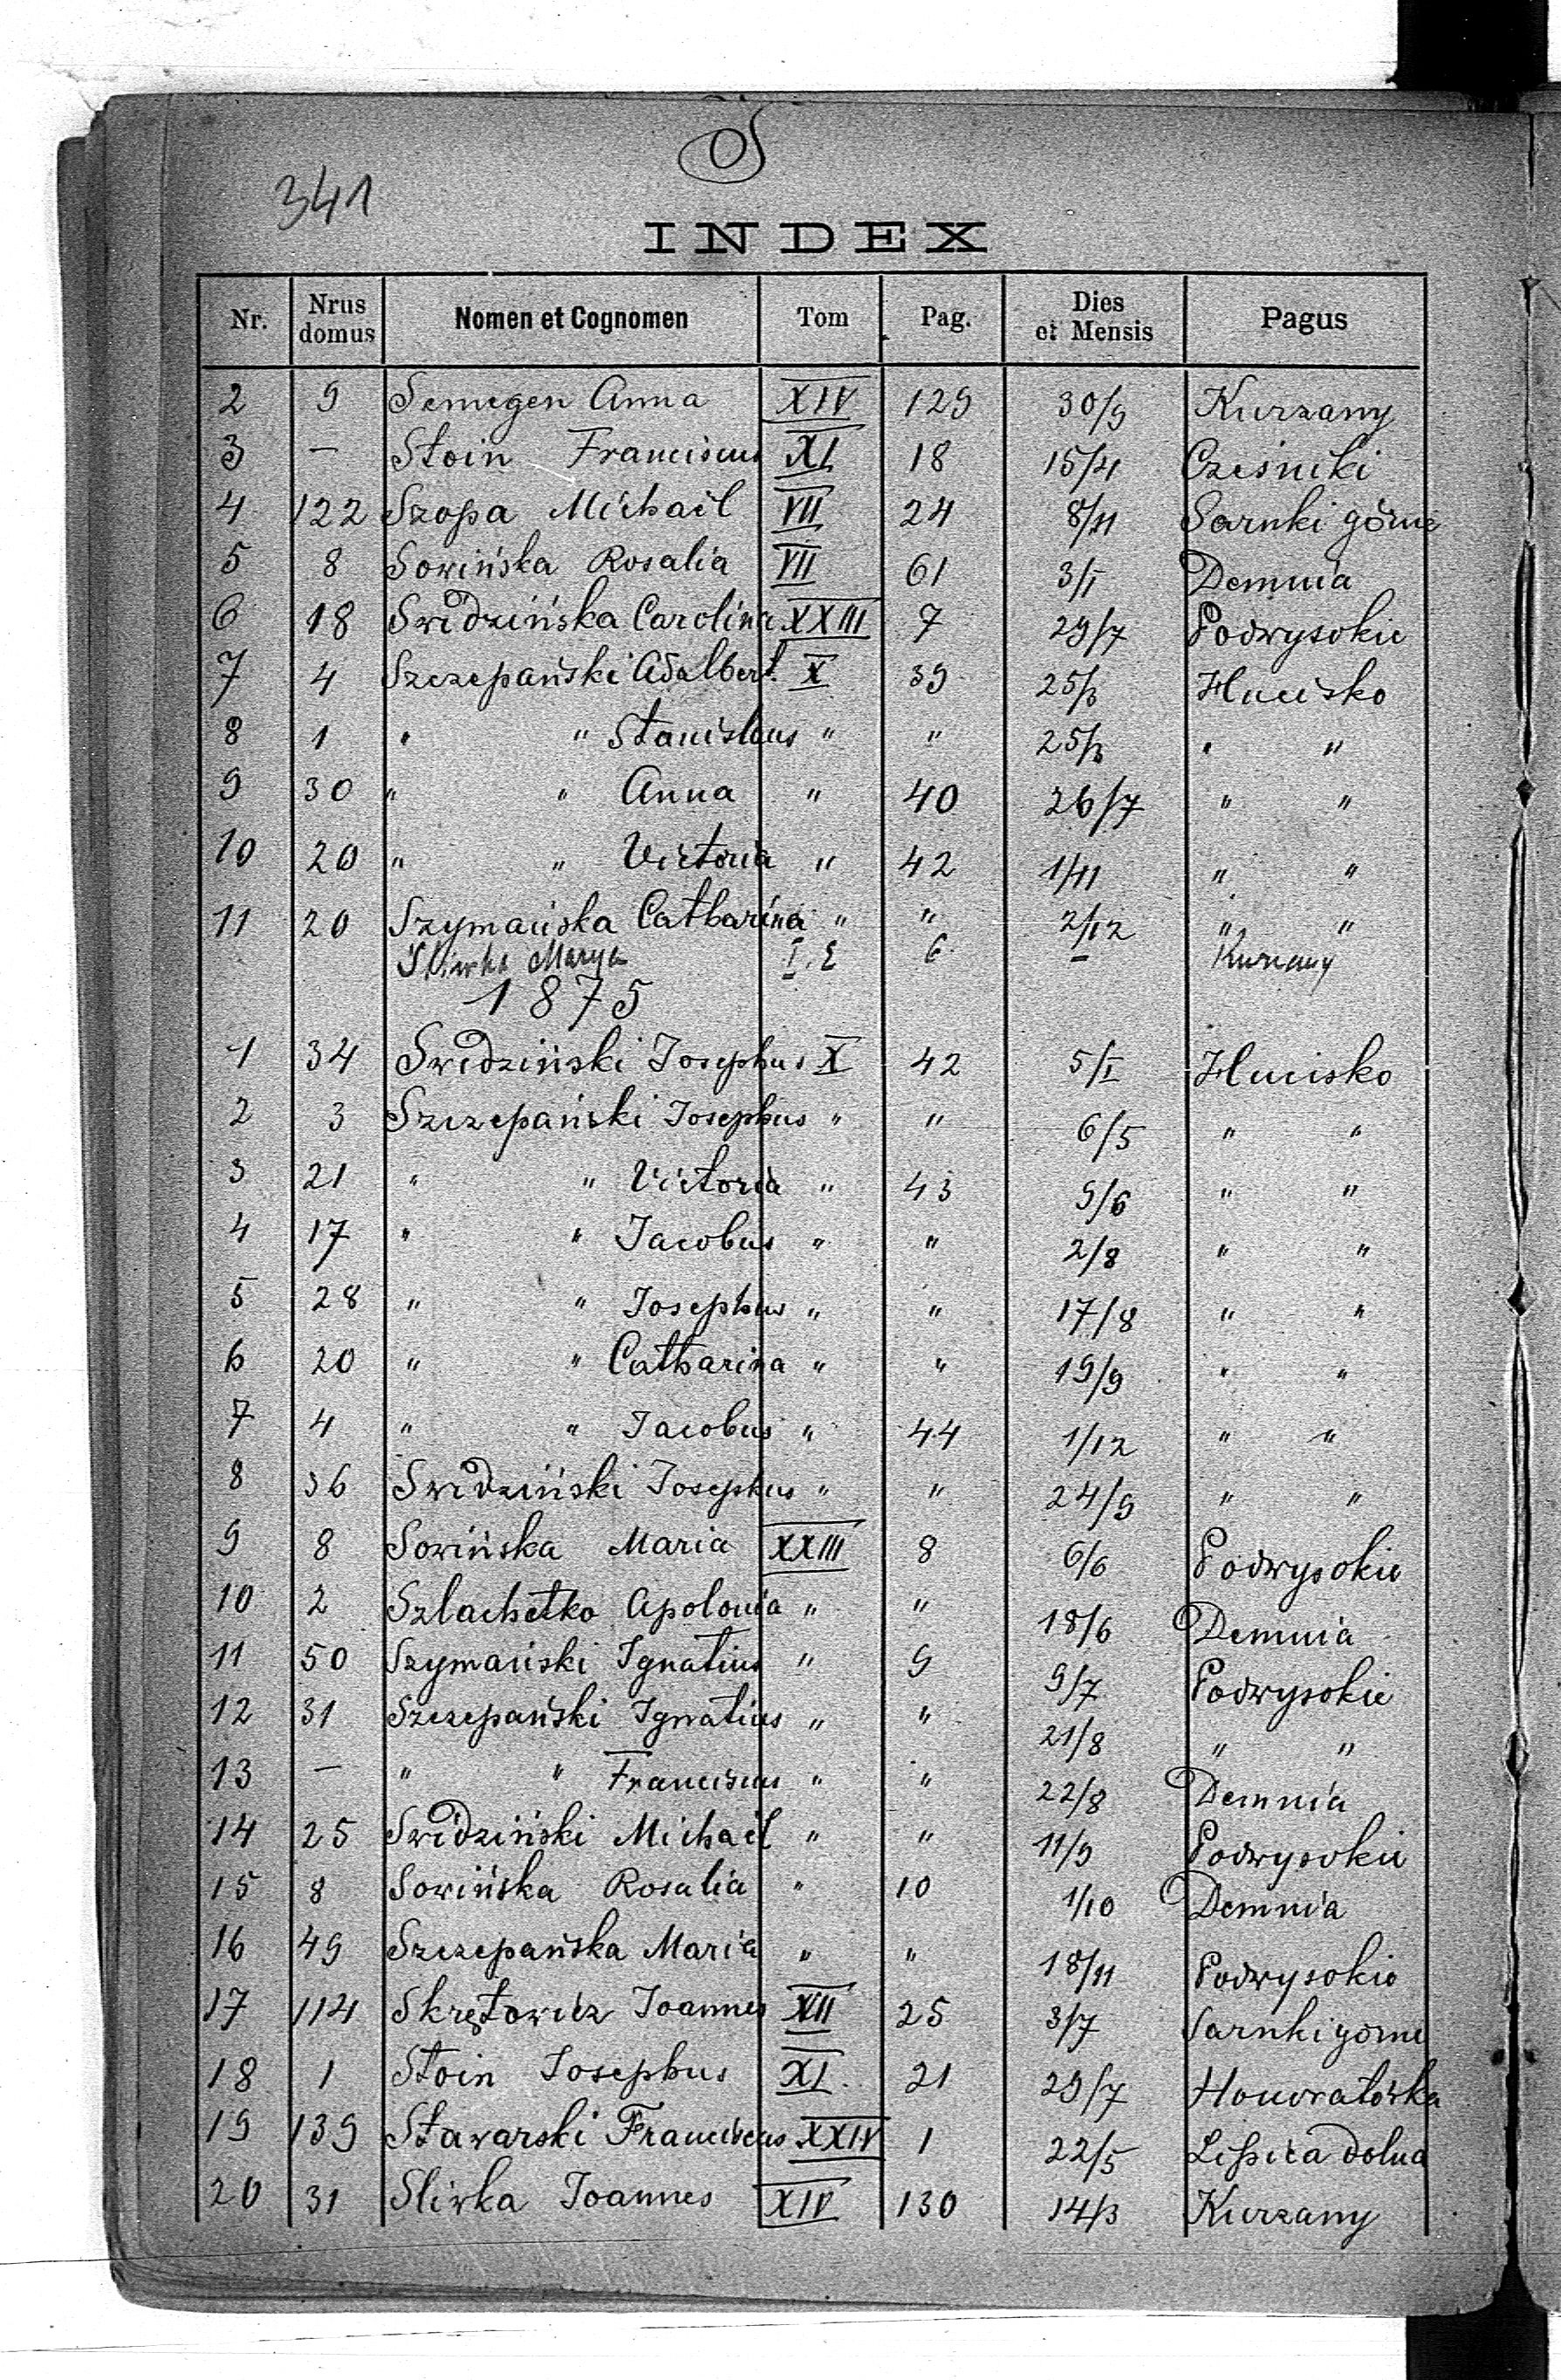 S
341
INDEX
Nr. Nrus domus Nomen et Cognomen Tom Pag. Dies et Mensis Pagus
2 9 Semegen Anna XIV 129 30/9 Kurzany
3 — Stoin Franciscus XI 18 15/4 Cześniki
4 122 Szopa Michaël VII 24 8/11 Sarnki górne
5 8 Sowińska Rosalia VII 61 3/I Demnia
6 18 Swidzińska Carolina XXIII 7 29/7 Podwysokie
7 4 Szczepański Adalbert. X 39 25/3 Hucisko
8 1 " " Stanislaus " " 25/3 " "
9 30 " " Anna " 40 26/7 " "
10 20 " " Victoria " 42 1/11 " "
11 20 Szymańska Catharina " " 2/12 " "
Śliwka Marya I. E 6 — Kurzany
1875
1 34 Swidziński Josephus X 42 5/I Hucisko
2 3 Szczepański Josephus " " 6/5 " "
3 21 " " Victoria " 43 9/6 " "
4 17 " " Jacobus " " 2/8 " "
5 28 " " Josephus " " 17/8 " "
6 20 " " Catharina " " 19/9 " "
7 4 " " Jacobus " 44 1/12 " "
8 36 Swidziński Josephus " " 24/9 " "
9 8 Sowińska Maria XXIII 8 6/6 Podwysokie
10 2 Szlachetko Apolonia " " 18/6 Demnia
11 50 Szymański Ignatius " 9 9/7 Podwysokie
12 31 Szczepański Ignatius " " 21/8 " "
13 — " " Franciscus " " 22/8 Demnia
14 25 Swidziński Michaël " " 11/9 Podwysokie
15 8 Sowińska Rosalia " 10 1/10 Demnia
16 49 Szczepańska Maria " " 18/11 Podwysokie
17 114 Skrętowicz Joannes XII 25 3/7 Sarnki górne
18 1 Stoin Josephus XI 21 29/7 Honoratówka
19 139 Stawarski Franciscus XXIV 1 22/5 Lipica dolna
20 31 Sliwka Joannes XIV 130 14/3 Kurzany